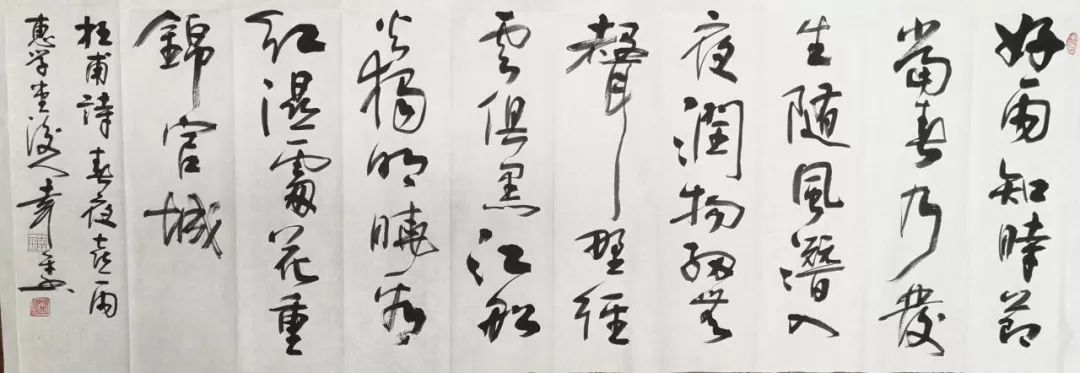 好雨知時節
當春乃發
生隨風潛入
夜潤物細無
聲野徑
雲俱黑江船
火獨明曉看
紅濕處花重
錦官城
杜甫詩春夜喜雨
惠学堂